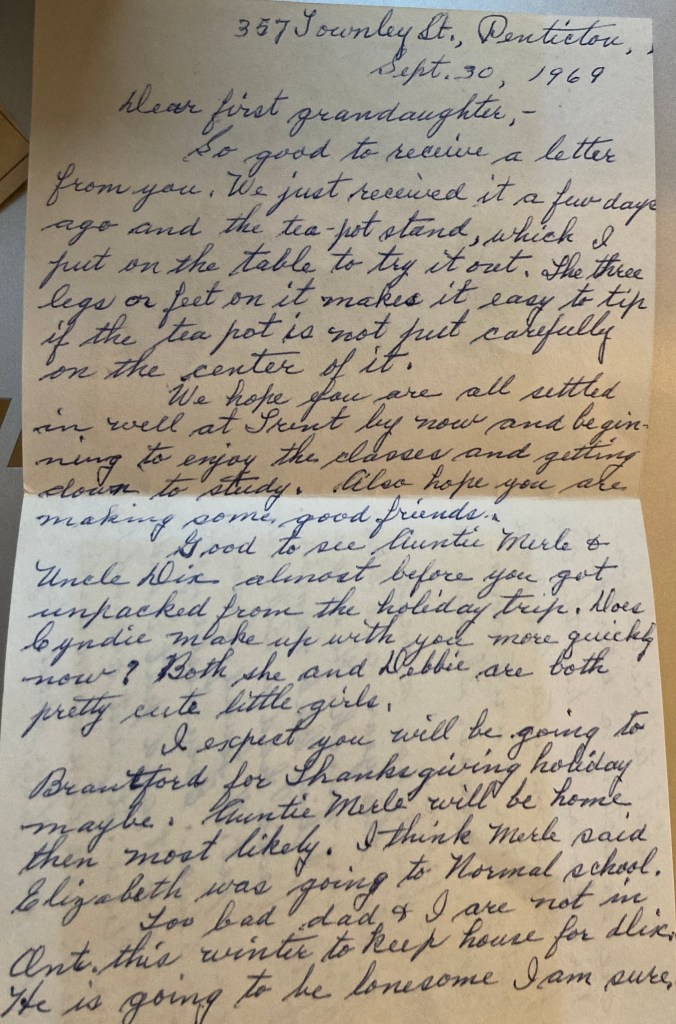 357 Townley St., Penticton,
Sept. 30, 1969
Dear first grandaughter,-
So good to receive a letter
from you. We just received it a few days
ago and the tea-pot stand, which I
put on the table to try it out. The three
legs or feet on it makes it easy to tip
if the tea pot is not put carefully
on the center of it.
We hope you are all settled
in well at Trent by now and begin-
ning to enjoy the classes and getting
down to study. Also hope you are
making some good friends.
Good to see Auntie Merle &
Uncle Dix almost before you got
unpacked from the holiday trip. Does
Cyndie make up with you more quickly
now? Both she and Debbie are both
pretty cute little girls.
I expect you will be going to
Brantford for Thanksgiving holiday
maybe. Auntie Merle will be home
then most likely. I think Merle said
Elizabeth was going to Normal school.
Too bad dad & I are not in
Ont. this winter to keep house for Dix.
He is going to be lonesome I am sure.